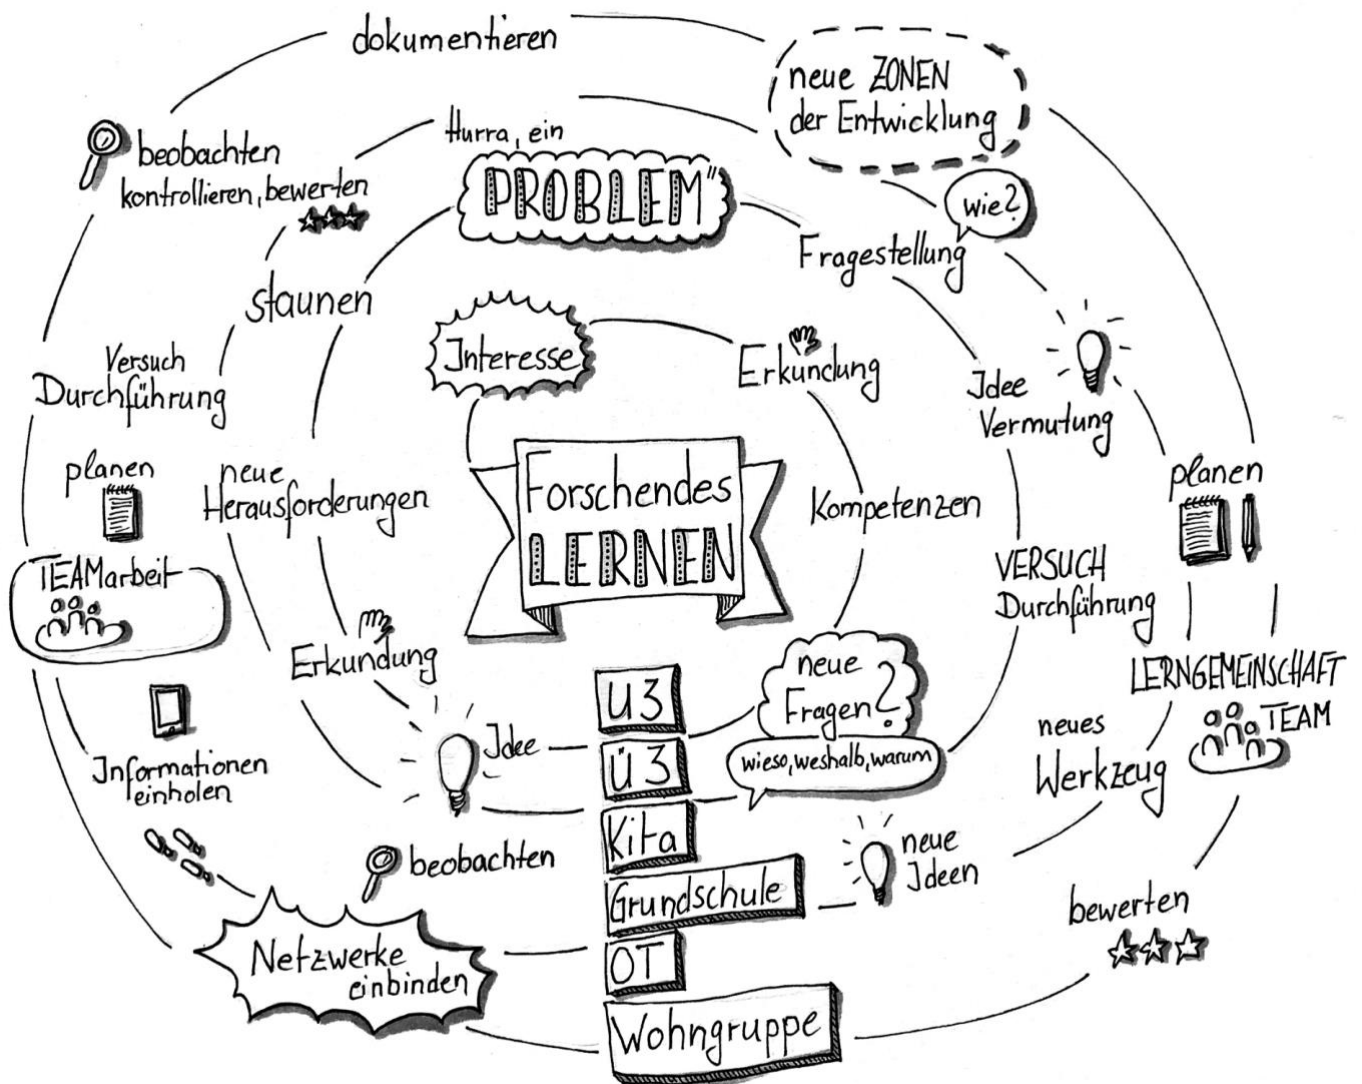 dokumentieren
neue ZONEN
der Entwicklung
beobachten
kontrollieren, bewerten
Hurra, ein
PROBLEM"
wie?
Fragestellung
staunen
Interesse
Erkundung
Idee
Vermutung
Versuch
Durchführung
planen
neue
Herausforderungen
Forschendes
LERNEN
Kompetenzen
planen
TEAMarbeit
VERSUCH
Durchführung
Erkundung
neue
Fragen?
wieso, weshalb, warum
LERNGEMEINSCHAFT
TEAM
Informationen
einholen
Idee
U3
Ü3
Kita
Grundschule
OT
Wohngruppe
neues
Werkzeug
beobachten
neue
Ideen
bewerten
Netzwerke
einbinden